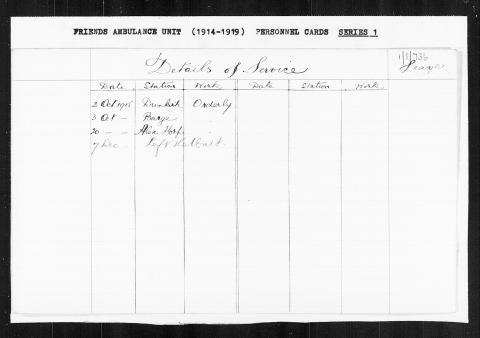 FRIENDS AMBULANCE UNIT (1914-1919) PERSONNEL CARDS SERIES 1
Details of Service
Date Station Work Date Station Work
2 Oct 1915 Dunkirk Orderly
3 Oct - Barge
20 - - Alex Hosp
7 Dec - Left